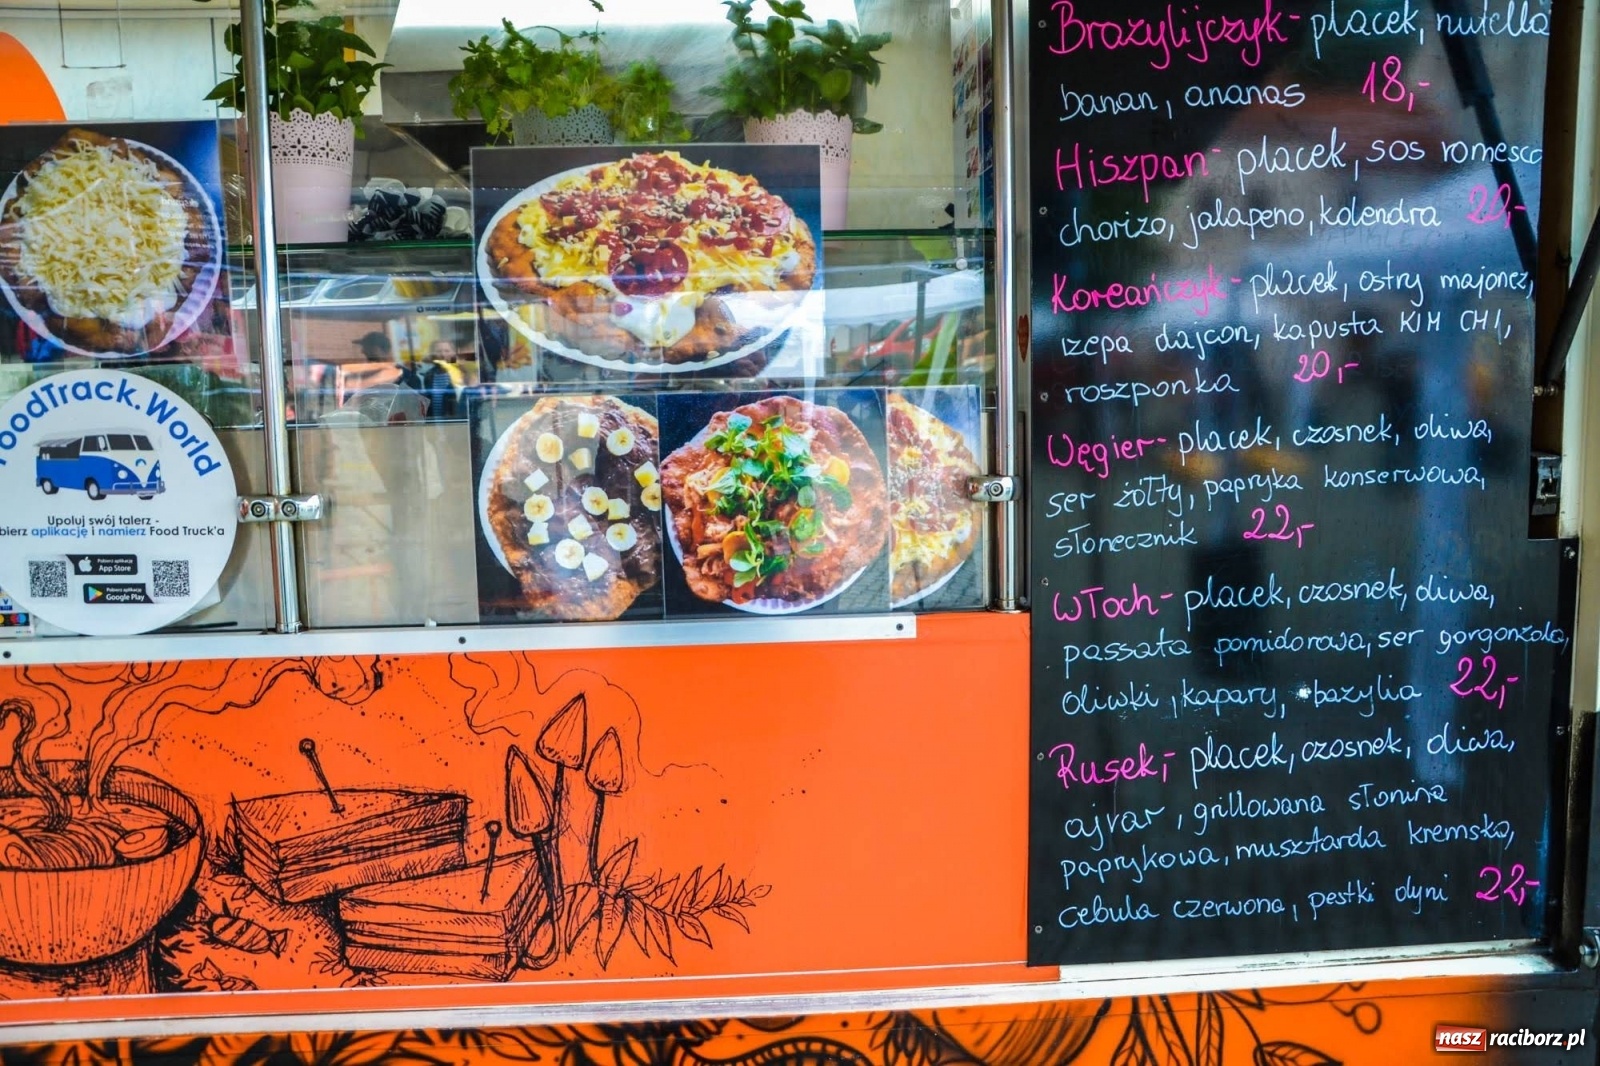 FoodTrack.World
Upoluj swój talerz -
bierz aplikację i namierz Food Truck'a
Pobierz aplikację
App Store
Pobierz aplikację
Google Play
Brazylijczyk- placek, nutella
banan, ananas 18,-
Hiszpan- placek, sos romesco
chorizo, jalapeno, kolendra 20,-
Koreańczyk- placek, ostry majonez,
rzepa dajcon, kapusta KIM CHI,
roszponka 20,-
Węgier- placek, czosnek, oliwa,
ser żółty, papryka konserwowa,
słonecznik 22,-
Włoch- placek, czosnek, oliwa,
passata pomidorowa, ser gorgonzola,
oliwki, kapary, bazylia 22,-
Rusek,- placek, czosnek, oliwa,
ajvar, grillowana słonina
paprykowa, musztarda kremska,
cebula czerwona, pestki dyni 22,-
nasz raciborz.pl